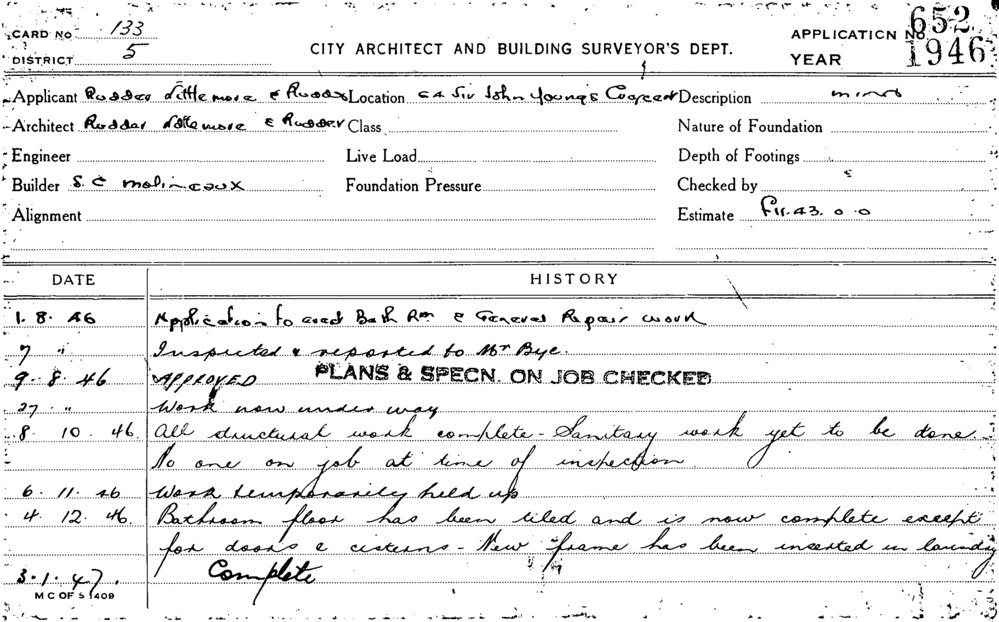 CARD NO 133 APPLICATION NO 652
DISTRICT 5 CITY ARCHITECT AND BUILDING SURVEYOR'S DEPT. YEAR 1946
Applicant Rudder Littlemore & Rudder Location 64 Sir John Young's Crescent Description minor
Architect Rudder Littlemore & Rudder Class Nature of Foundation
Engineer Live Load Depth of Footings
Builder S. C Molineaux Foundation Pressure Checked by
Alignment Estimate
DATE HISTORY
1. 8. 46 Application to erect Bath Rm & General Repair work
7 " Inspected & reported to Mr Bye.
9. 8. 46 APPROVED PLANS & SPECN. ON JOB CHECKED
27 " Work now under way
8. 10. 46. All structural work complete - Sanitary work yet to be done
No one on job at time of inspection
6. 11. 46 Work temporarily held up
4. 12. 46. Bathroom floor has been tiled and is now complete except
for doors & cisterns - New frame has been inserted in laundry
3. 1. 47. Complete
M C OF S 1409